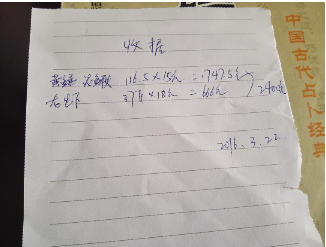 收据
黄鳝 泥鳅 116.5×15元=1747.5元
龙虾 37斤×18元=666元
2400元
2016.3.22
中国古代占人经典